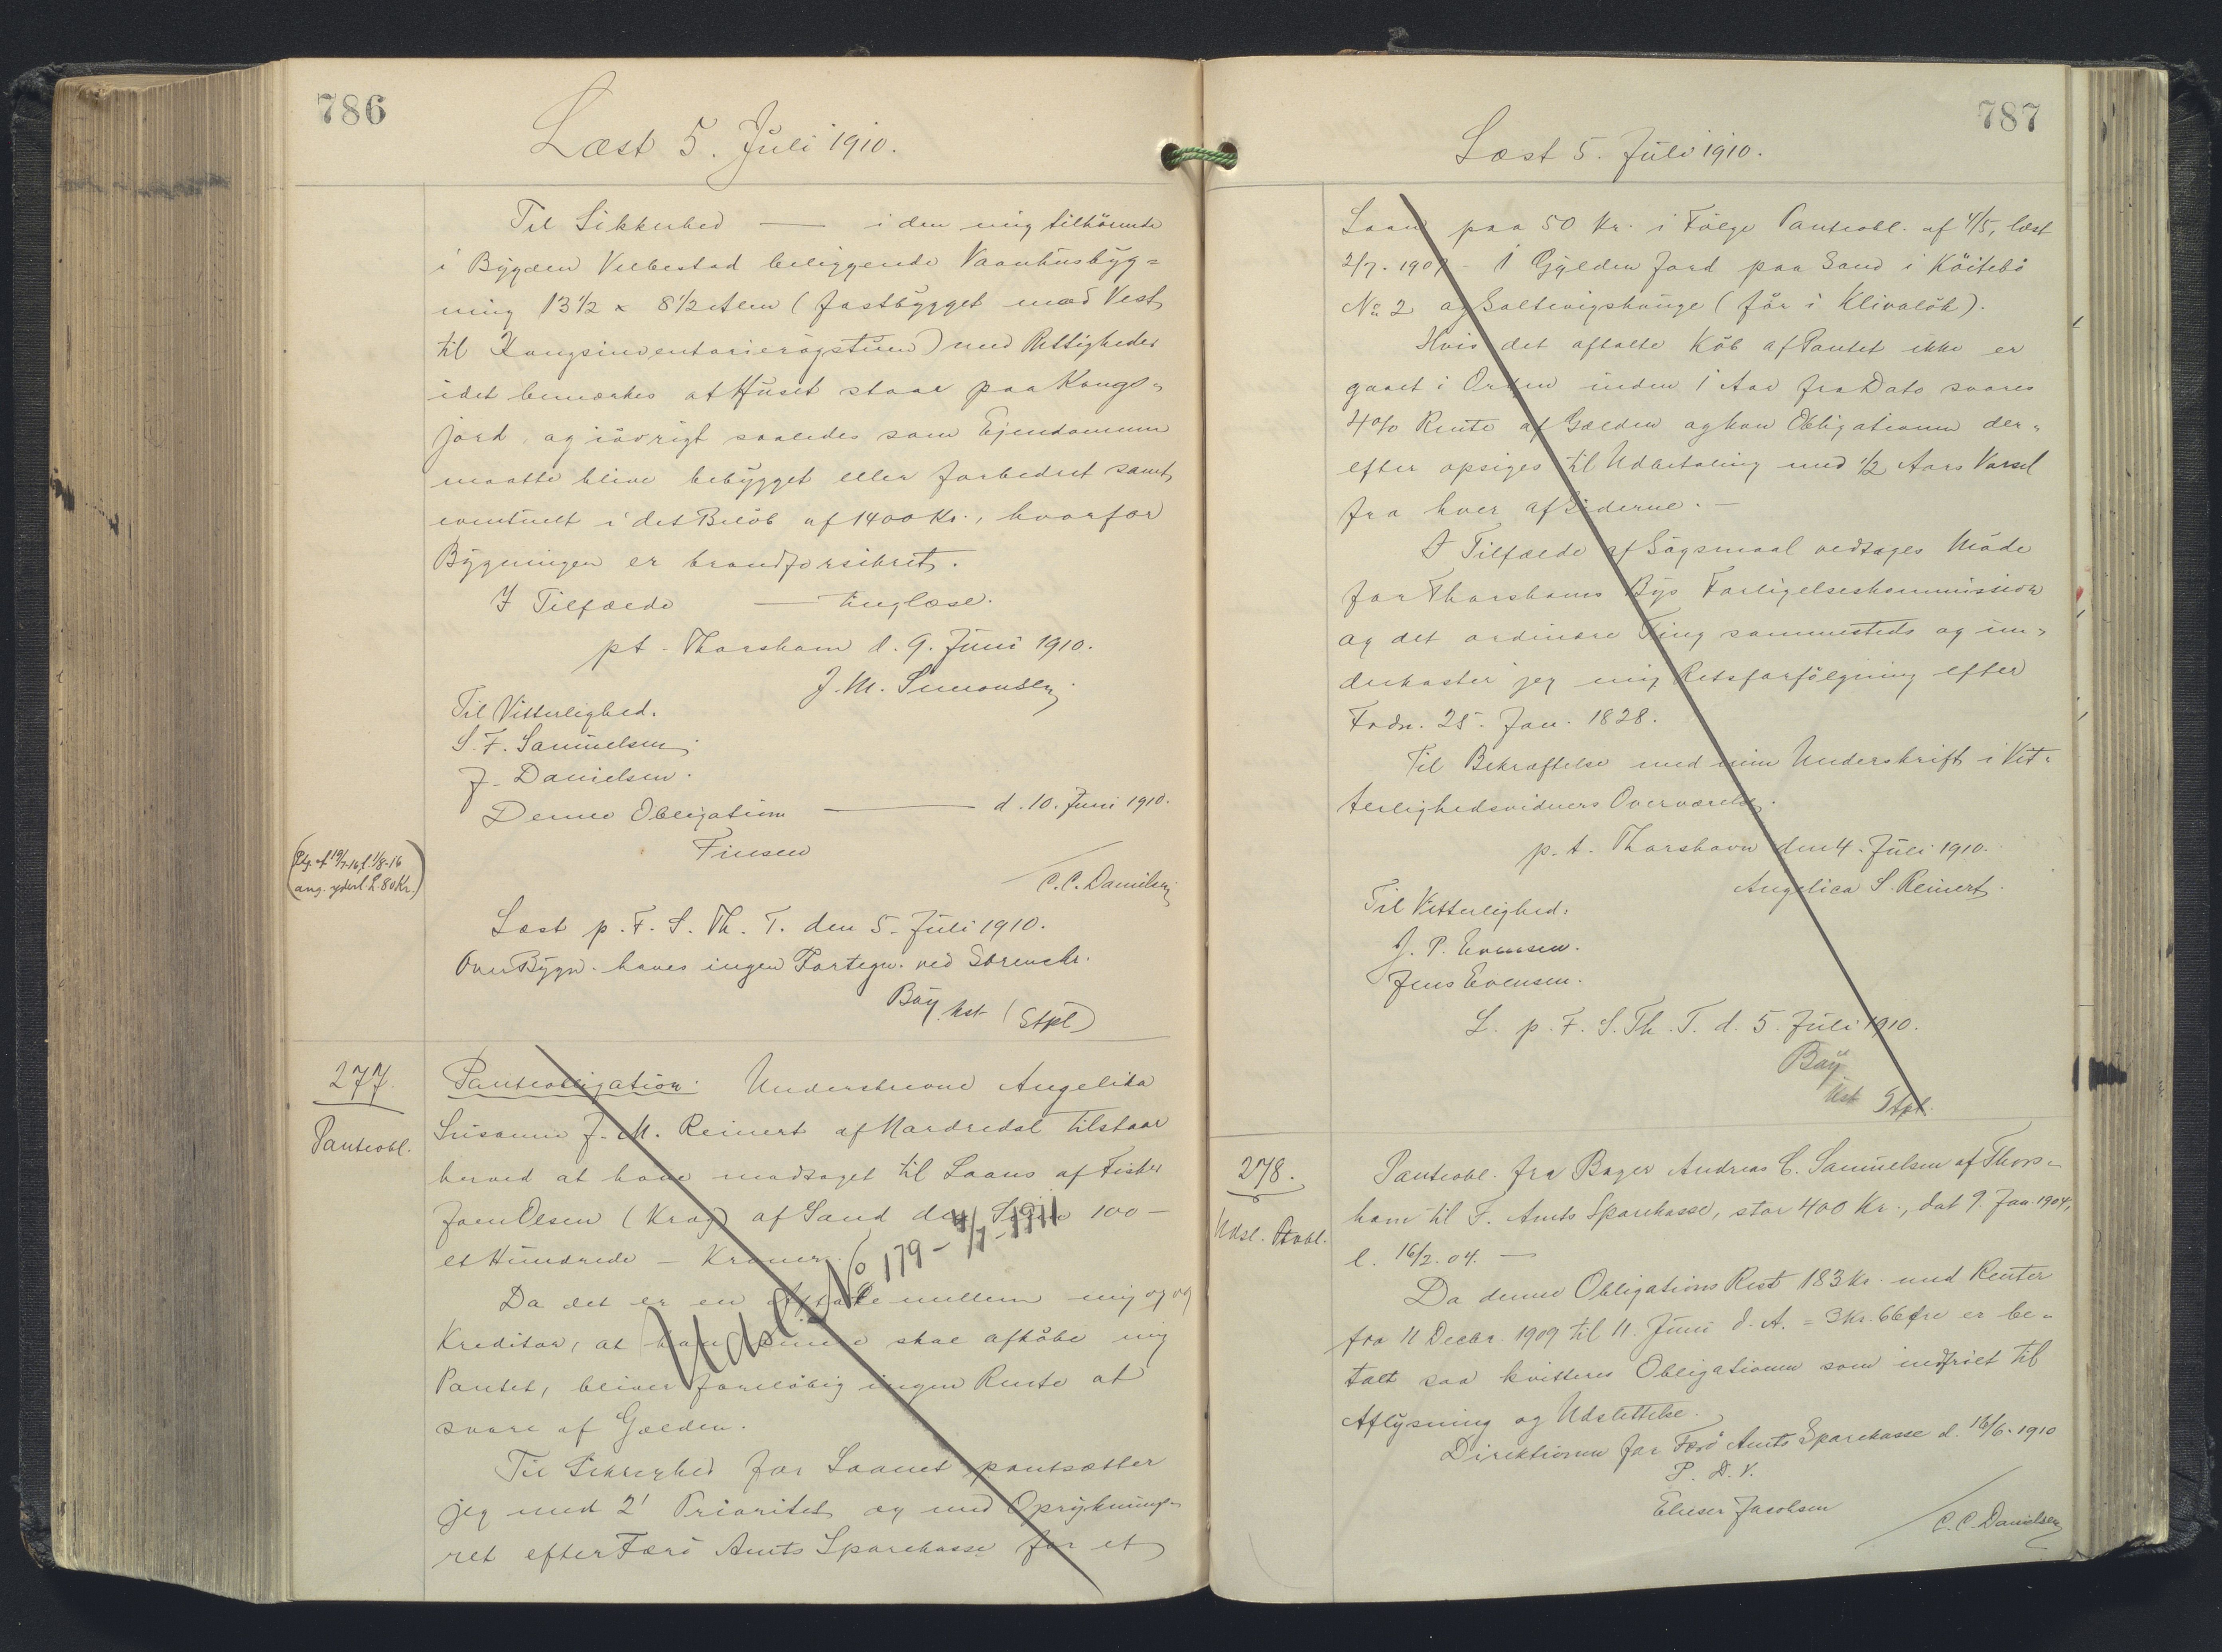 786
Læst 5. Juli 1910.
Til Sikkerhed — i den mig tilhörende
i Bygden Velbestad beliggende Vaanhusbyg=
ning 13 1/2 x 8 1/2 Alen (fastbygget med Vest
til Kongsinventarierögstuen) med Rettigheder
idet bemærkes at Huset staar paa Kongs=
jord, og iövrigt saaledes som Ejendommen
maatte blive bebygget eller forbedret samt
eventuelt i det Belöb af 1400 Kr., hvorfor
Bygningen er brandforsikret.
I Tilfælde — tinglæse.
pt. Thorshavn d. 9. Juni 1910.
J. M. Simonsen
Til Vitterlighed.
S. F. Samuelsen
J. Danielsen.
Denne Obligation — d. 10. Juni 1910.
Finsen
C. C. Danielsen
(Ptg. af 19/7-16, l. 1/8-16
ang. yderl. L. 80 Kr.)
Læst p. F. S. Th. T. den 5. Juli 1910.
Over Bygn. haves ingen Fortegn. ved Sorenskr.
Bay kst (Stpl)
277.
Panteobl.
Panteobligation. Underskrevne Angelika
Susanne J. M. Reinert af Mardredal tilstaar
herved at have modtaget til Laans af Fisker
Joen Olsen (Krog) af Sand den Sum 100 —
et Hundrede — Kroner.
Da det er en Aftale mellem mig og
Kreditor, at han skal afköbe mig
Pantet, bliver foreløbig ingen Rente at
svare af Gælden.
Udsl. No 179 - 4/7 - 1911
Til Sikkerhed for Laanet pantsætter
jeg med 2' Prioritet og med Opryknings=
ret efter Færö Amts Sparekasse for et
787
Læst 5. Juli 1910.
Laan paa 50 Kr. i Fölge Panteobl. af 4/5, læst
2/7. 1907 - 1 Gylden Jord paa Sand i Köitebö
No 2 og Saltevigshauge (får i Klivalök).
Hvis det aftalte Köb af Pantet ikke er
gaaet i Orden inden 1 Aar fra Dato svares
4 % Rente af Gælden og kan Obligationen der=
efter opsiges til Udbetaling med 1/2 Aars Varsel
fra hver af Siderne. —
I Tilfælde af Sögsmaal vedtages Möde
for Thorshavns Bys Forligelseskommission
og det ordinære Ting sammesteds og un=
derkaster jeg mig Retsforfölgning efter
Frdn. 25. Jan. 1828.
Til Bekræftelse med min Underskrift i Vit=
terlighedsvidners Overværelse.
p. t. Thorshavn den 4. Juli 1910.
Angelica S. Reinert.
Til Vitterlighed:
J. P. Evensen.
Jens Evensen.
L. p. F. S. Th. T. d. 5. Juli 1910.
Bay
kst Stpl.
278.
Udsl. Ptobl.
Panteobl. fra Bager Andreas C. Samuelsen af Thors=
havn til F. Amts Sparekasse, stor 400 Kr., dat 9. Jan. 1904,
l. 16/2. 04. —
Da denne Obligations Rest 183 Kr. med Renter
fra 11 Decbr. 1909 til 11. Juni d. A. = 3 Kr. 66 Øre er be=
talt saa kvitteres Obligationen som indfriet til
Aflysning og Udslettelse.
Direktionen for Færö Amts Sparekasse d. 16/6. 1910
P. D. V.
Elieser Jacobsen
C. C. Danielsen